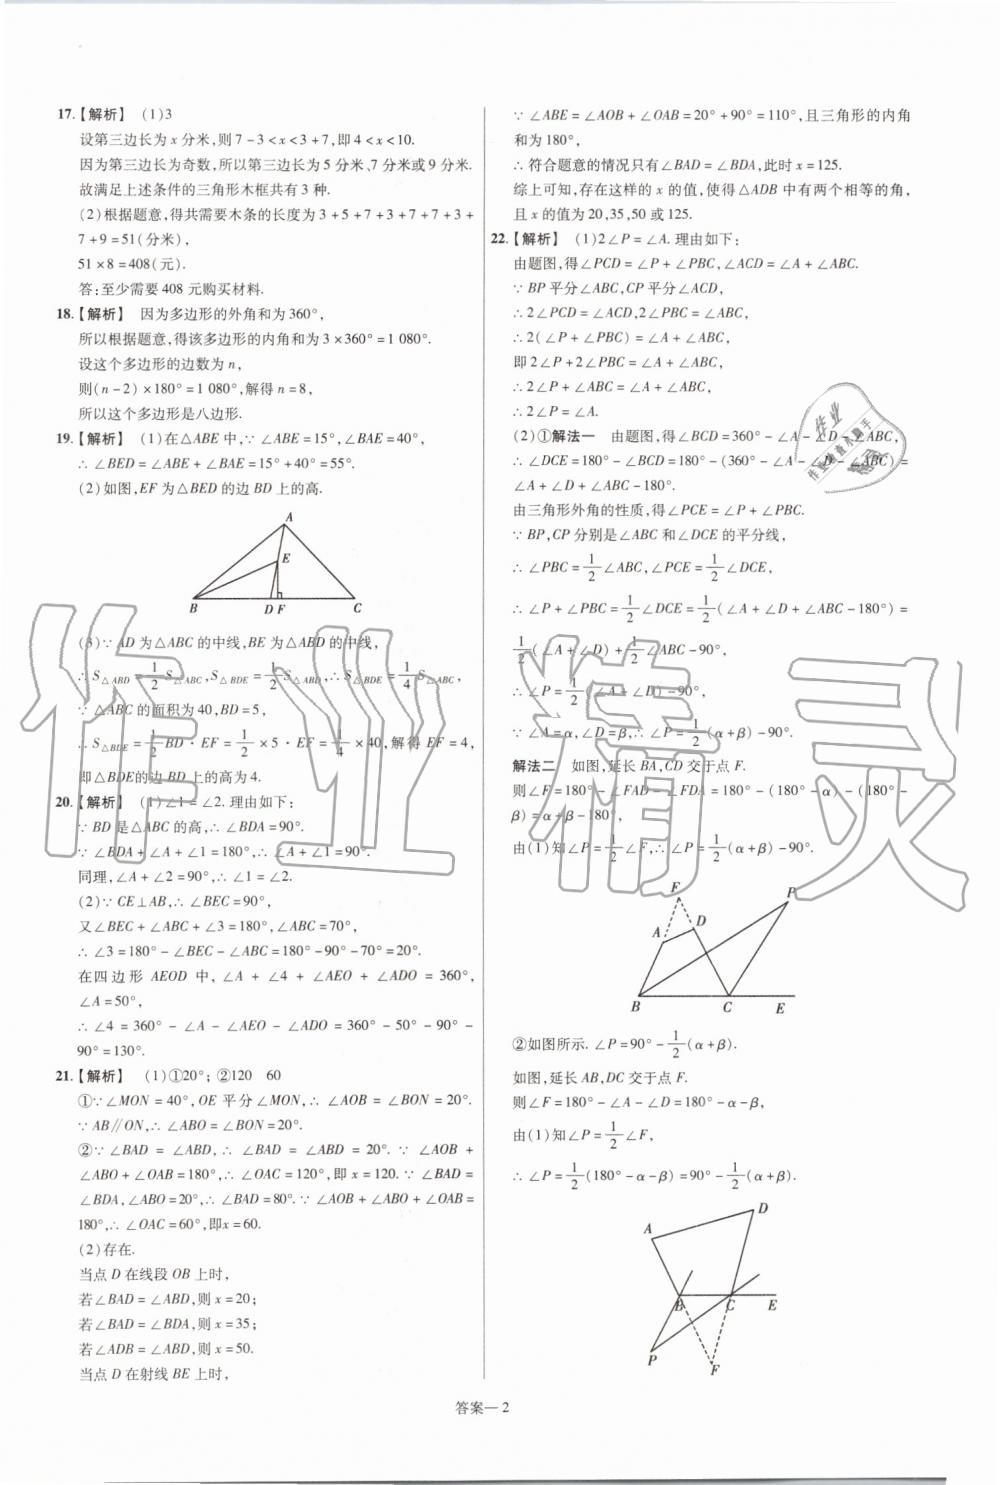 17.【解析】 (1)3
设第三边长为 x 分米,则 7-3<x<3+7,即 4<x<10.
因为第三边长为奇数,所以第三边长为5 分米、7 分米或 9 分米.
故满足上述条件的三角形木框共有 3 种.
(2)根据题意,得共需要木条的长度为 3+5+7+3+7+7+3+
7+9=51(分米),
51×8=408(元).
答:至少需要 408 元购买材料.
18.【解析】 因为多边形的外角和为360°,
所以根据题意,得该多边形的内角和为 3×360°=1 080°.
设这个多边形的边数为 n,
则(n-2)×180°=1 080°,解得 n=8,
所以这个多边形是八边形.
19.【解析】 (1)在△ABE 中,∵ ∠ABE=15°,∠BAE=40°,
∴ ∠BED=∠ABE+∠BAE=15°+40°=55°.
(2)如图,EF 为△BED 的边 BD 上的高.
A
E
B D F C
(3)∵ AD 为△ABC 的中线,BE 为△ABD 的中线,
∴ S△ABD=1/2 S△ABC,S△BDE=1/2 S△ABD,∴ S△BDE=1/4 S△ABC,
∵ △ABC 的面积为 40,BD=5,
∴ S△BDE=1/2 BD·EF=1/2×5·EF=1/4×40,解得 EF=4,
即△BDE的边 BD 上的高为4.
20.【解析】 (1)∠1=∠2. 理由如下:
∵ BD 是△ABC 的高,∴ ∠BDA=90°.
∵ ∠BDA+∠A+∠1=180°,∴ ∠A+∠1=90°.
同理,∠A+∠2=90°,∴ ∠1=∠2.
(2)∵ CE⊥AB,∴ ∠BEC=90°,
又∠BEC+∠ABC+∠3=180°,∠ABC=70°,
∴ ∠3=180°-∠BEC-∠ABC=180°-90°-70°=20°.
在四边形 AEOD 中,∠A+∠4+∠AEO+∠ADO=360°,
∠A=50°,
∴ ∠4=360°-∠A-∠AEO-∠ADO=360°-50°-90°-
90°=130°.
21.【解析】 (1)①20°; ②120 60
①∵ ∠MON=40°,OE 平分∠MON,∴ ∠AOB=∠BON=20°.
∵ AB∥ON,∴ ∠ABO=∠BON=20°.
②∵ ∠BAD=∠ABD,∴ ∠BAD=∠ABD=20°. ∵ ∠AOB+
∠ABO+∠OAB=180°,∴ ∠OAC=120°,即 x=120. ∵ ∠BAD=
∠BDA,∠ABO=20°,∴ ∠BAD=80°. ∵ ∠AOB+∠ABO+∠OAB=
180°,∴ ∠OAC=60°,即x=60.
(2)存在.
当点 D 在线段 OB 上时,
若∠BAD=∠ABD,则 x=20;
若∠BAD=∠BDA,则 x=35;
若∠ADB=∠ABD,则 x=50.
当点 D 在射线 BE 上时,
∵ ∠ABE=∠AOB+∠OAB=20°+90°=110°,且三角形的内角
和为180°,
∴ 符合题意的情况只有∠BAD=∠BDA,此时 x=125.
综上可知,存在这样的 x 的值,使得△ADB 中有两个相等的角,
且 x 的值为 20,35,50 或 125.
22.【解析】 (1)2∠P=∠A. 理由如下:
由题图,得∠PCD=∠P+∠PBC,∠ACD=∠A+∠ABC.
∵ BP 平分∠ABC,CP 平分∠ACD,
∴ 2∠PCD=∠ACD,2∠PBC=∠ABC,
∴ 2(∠P+∠PBC)=∠A+∠ABC,
即 2∠P+2∠PBC=∠A+∠ABC,
∴ 2∠P+∠ABC=∠A+∠ABC,
∴ 2∠P=∠A.
(2)①解法一 由题图,得∠BCD=360°-∠A-∠D-∠ABC,
∴ ∠DCE=180°-∠BCD=180°-(360°-∠A-∠D-∠ABC)=
∠A+∠D+∠ABC-180°.
由三角形外角的性质,得∠PCE=∠P+∠PBC.
∵ BP,CP 分别是∠ABC 和∠DCE 的平分线,
∴ ∠PBC=1/2∠ABC,∠PCE=1/2∠DCE,
∴ ∠P+∠PBC=1/2∠DCE=1/2(∠A+∠D+∠ABC-180°)=
1/2(∠A+∠D)+1/2∠ABC-90°,
∴ ∠P=1/2(∠A+∠D)-90°,
∵ ∠A=α,∠D=β,∴ ∠P=1/2(α+β)-90°.
解法二 如图,延长 BA,CD 交于点 F.
则∠F=180°-∠FAD-∠FDA=180°-(180°-α)-(180°-
β)=α+β-180°,
由(1)知∠P=1/2∠F,∴ ∠P=1/2(α+β)-90°.
F
P
A D
B C E
②如图所示. ∠P=90°-1/2(α+β).
如图,延长 AB,DC 交于点 F.
则∠F=180°-∠A-∠D=180°-α-β,
由(1)知∠P=1/2∠F,
∴ ∠P=1/2(180°-α-β)=90°-1/2(α+β).
D
A
B C E
P
F
答案—2
作业精灵
作业